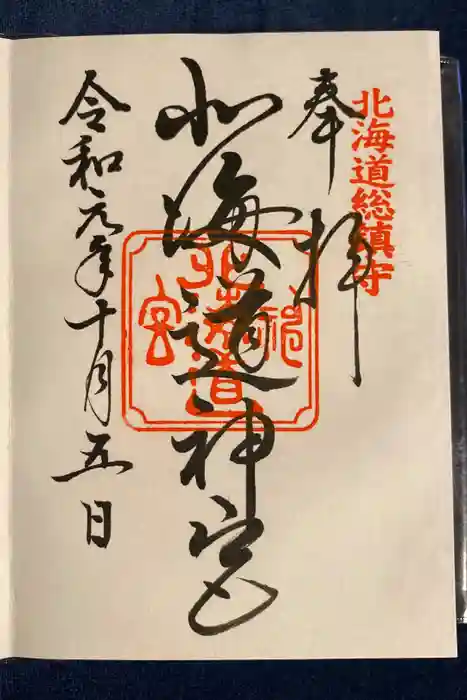 北海道総鎮守
奉拝
北海道神宮
北海道神宮
令和元年十月五日